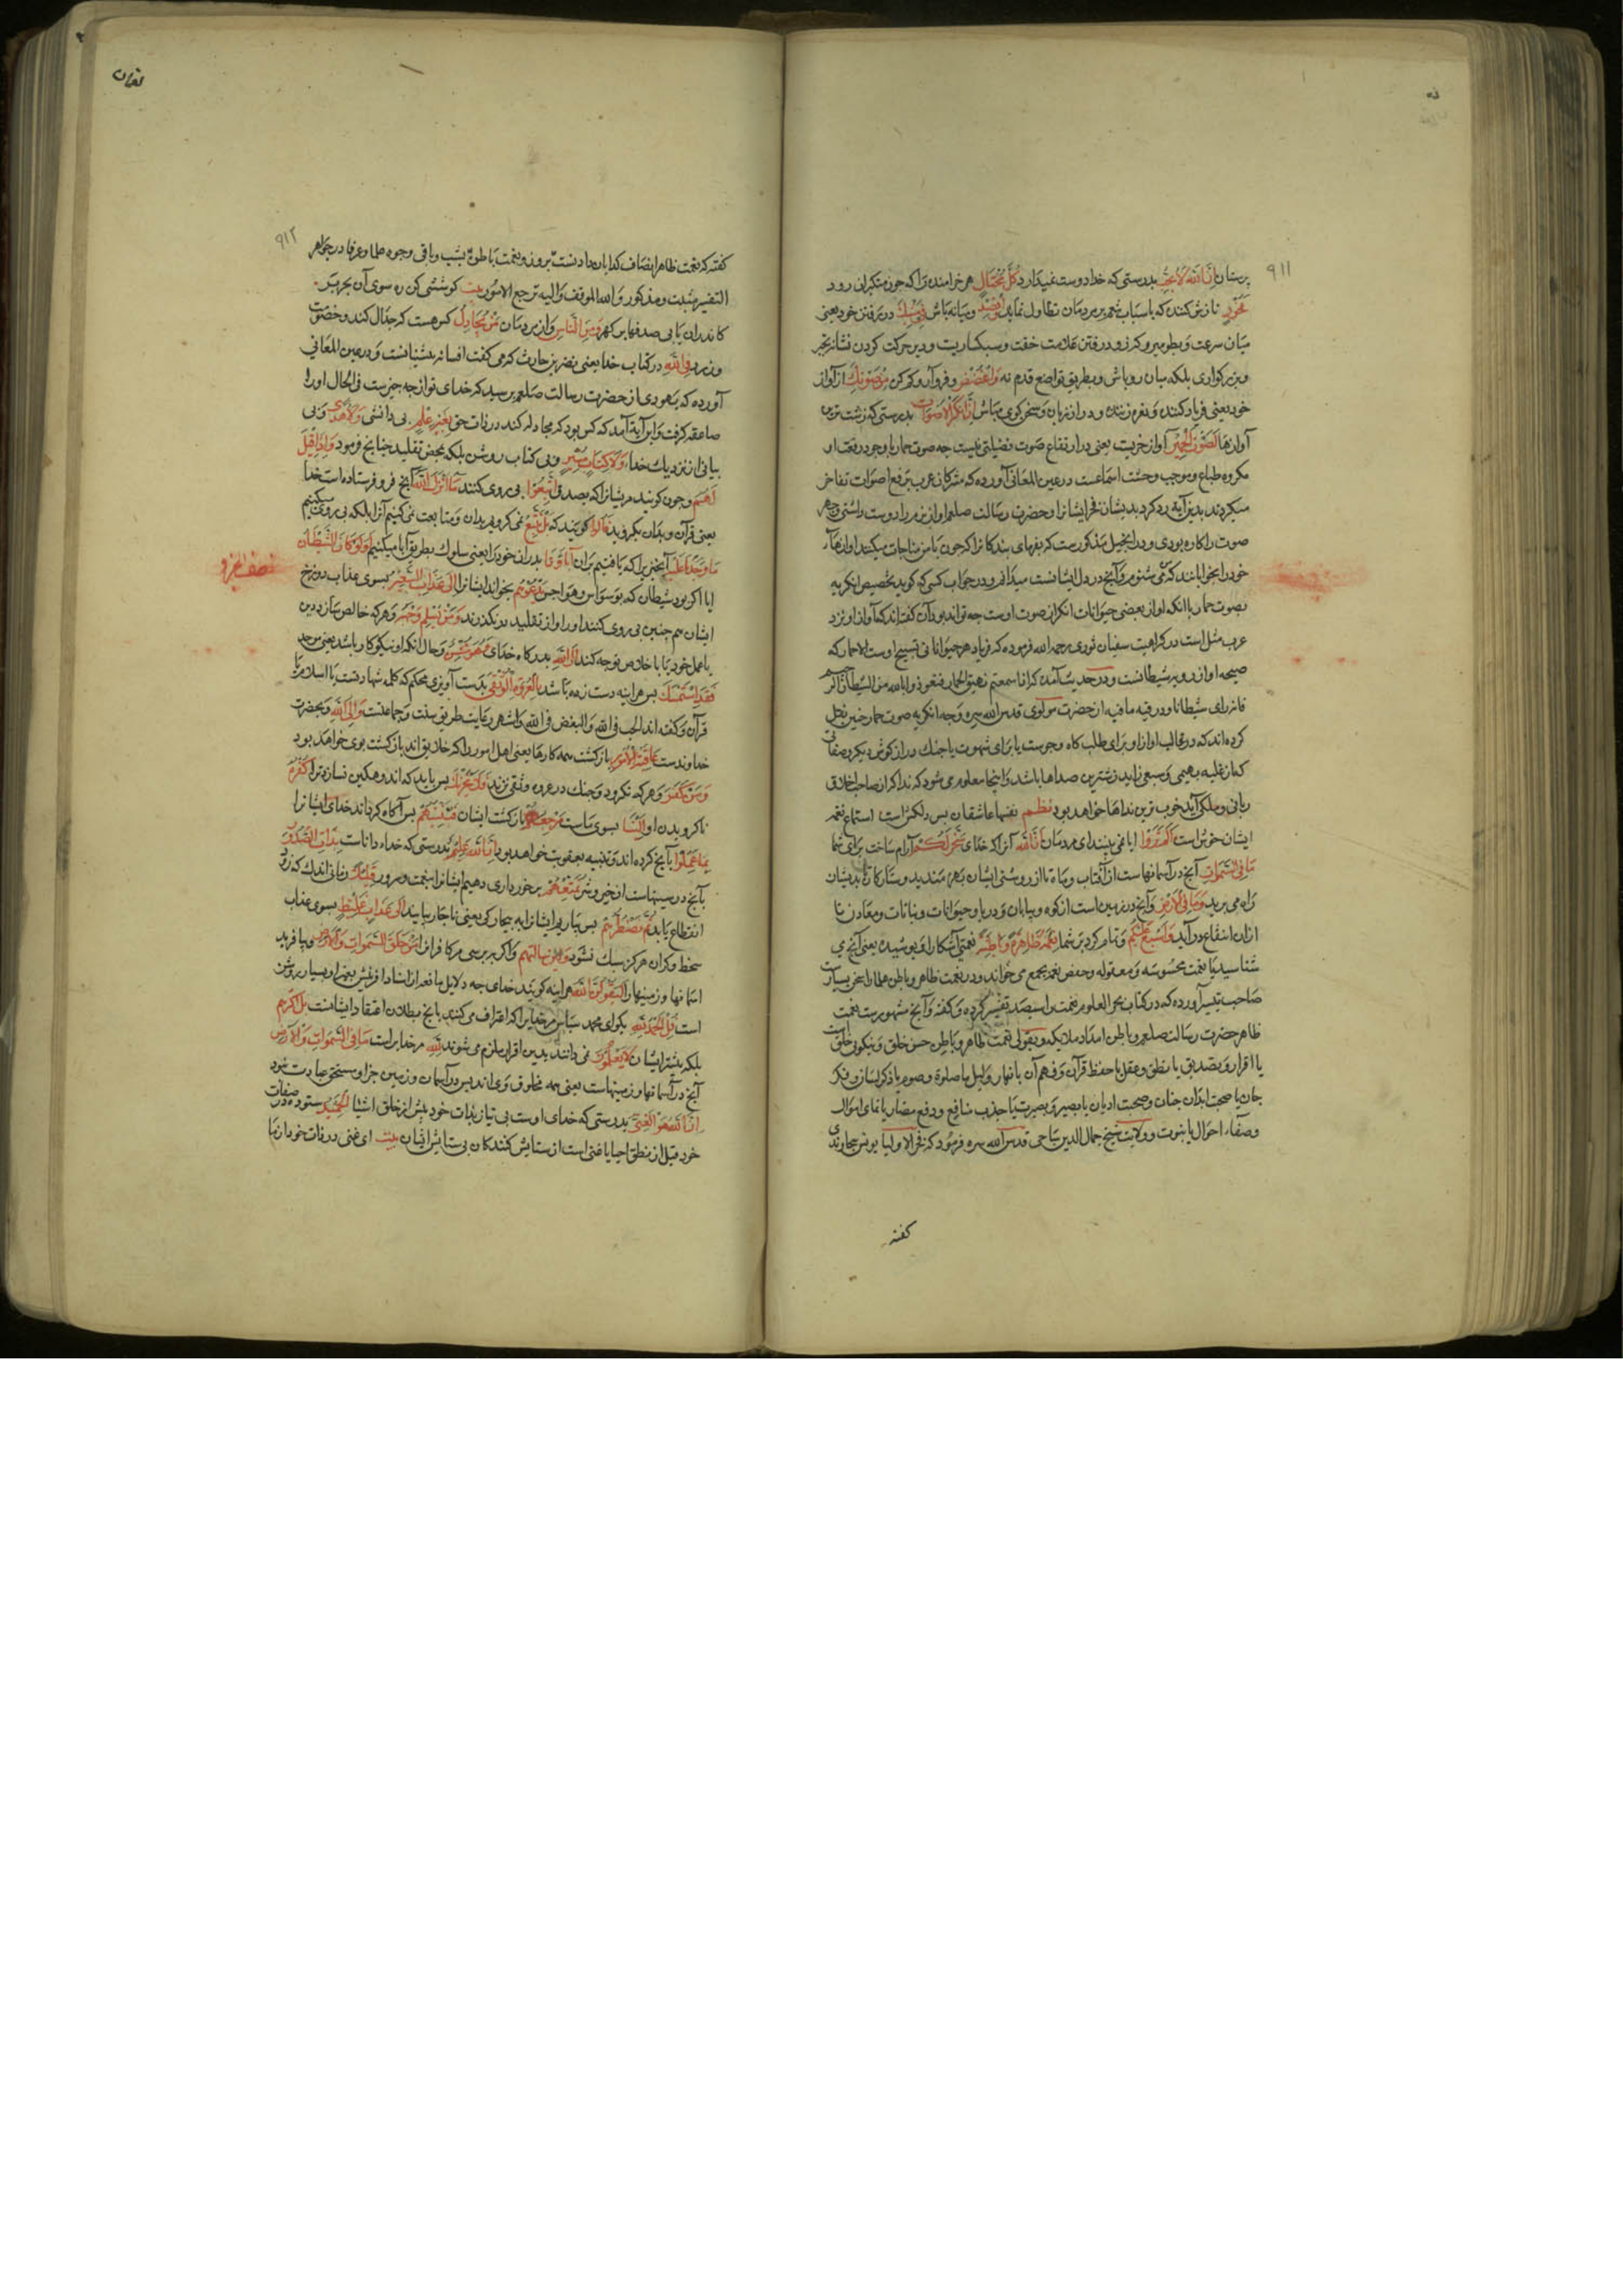 ۹۱۱
پرستان إِنَّ اللهَ لَا يُحِبُّ بدرستی که خدا دوست نمیدارد كُلَّ مُخْتَالٍ هر خرامنده را که چون متکبران رود
فَخُورٍ نازش کننده که باسباب تنعم بر مردمان تطاول نماید وَاقْصِدْ و میانه باش فِي مَشْيِكَ در رفتن خود یعنی
میان سرعت و بطو میرو که زود رفتن علامت خفت و سبکساریست و دیر حرکت کردن نشانه تجبر
و بزرکواری بلکه میان رو باش و بطریق تواضع قدم نه وَاغْضُضْ و فرو آر و کم کن مِنْ صَوْتِكَ از آواز
خود یعنی فریاد کننده و نعره زننده و دراز زبان و سخن کوی مباش إِنَّ أَنْكَرَ الْأَصْوَاتِ بدرستی که زشت ترین
آوازها لَصَوْتُ الْحَمِيرِ آواز خریست یعنی در ارتفاع صوت فضیلتی نیست چه صوت حمار با وجود رفعت او
مکروه طباع و موجب وحشت اسماعست در عین المعانی آورده که مشرکان عرب برفع اصوات تفاخر
میکردند بدین آیه رد کرد بدیشان فخر ایشانرا و حضرت رسالت صلعم آواز نرم را دوست داشتی و جهر
صوت را کاره بودی و در انجیل مذکورست که بفرمای بندکانرا که چون با من مناجات میکنند آوازهاء
خود را بخوابانند که من می شنوم و آنچه در دل ایشانست میدانم و در جواب کسی که کوید تخصیص انکریه
بصوت حمار با آنکه آواز بعضی حیوانات انکر از صوت اوست چه تواند بود آن گفته اند که آواز او نزد
عرب مثل است در کراهیت سفیان ثوری رحمه الله فرموده که فریاد هر حیوانی تسبیح اوست الا حمار که
صیحه او از رویه شیطانست و در حدیث آمده که اذا سمعتم نهیق الحمار فتعوذوا بالله من الشیطان الرجیم
فانه رای شیطانا و در فیه ما فیه از حضرت مولوی قدس الله سره وجه انکریه صوت حمار چنین نقل
کرده اند که در غالب آواز او برای طلب کاه و جوست یا برای شهوت یا جنک دراز کوش دیکر و صفاتی
که از غلبه بهیمی و سبعی زاید زشترین صداها باشد و اینجا معلوم می شود که ندا که از صاحب اخلاق
ربانی و ملکی آید خوب ترین نداها خواهد بود نظم نغمها عاشقان بس دلکش است استماع نغمه
ایشان خوش است أَلَمْ تَرَوْا ایا نمی بینند ای مردمان أَنَّ اللهَ آنرا که خدای سَخَّرَ لَكُمْ رام ساخت برای شما
مَا فِي السَّمَوَاتِ آنچه در آسمانهاست از آفتاب و ماه تا از روشنی ایشان بهره مندید و ستارکان تا بدیشان
راه می برید وَمَا فِي الْأَرْضِ و آنچه در زمین است از کوه و بیابان و دریا و حیوانات و نباتات و معادن تا
ازان انتفاع در آید وَأَسْبَغَ عَلَيْكُمْ و تمام کرد بر شما نِعَمَهُ ظَاهِرَةً وَبَاطِنَةً نعمتی آشکارا و پوشیده یعنی آنچه می
شناسید یا نعمت محسوسه و معقوله و حفص نعمه بجمع می خواند و در نعمت ظاهر و باطن علما را سخن بسیارست
صاحب تیسیر آورده که در کتاب بحر العلوم نعمت را سیصد تفسیر کرده و کفته و آنچه مشهورست نعمت
ظاهر حضرت رسالت صلعم و باطن امداد ملایکه و بقولی نعمت ظاهر و باطن حسن خلق و نیکویی خلق است
یا اقرار و تصدیق یا نطق و عقل یا حفظ قرآن و فهم آن یا نهار و لیل یا صلوة و صوم یا ذکر لسان و فکر
جان یا صحت ابدان جنان و صحت ادیان یا بصر و بصیرت یا جذب منافع و دفع مضار یا نمای اموال
و صفاء احوال یا نبوت و ولایت شیخ جمال الدین ساجی قدس الله سره فرمود که فخر الاولیا یونس سجاوندی
کفته
لقمان
۹۱۲
کفته که نعمت ظاهر انصاف کدایان دادنست بروز و نعمت باطن بشب و باقی وجوه علما و عرفا در جواهر
التفسیر مثبت و مذکور و الله الموفق و الیه ترجع الامور بیت کوششی کن ره سوی آن بحر بر
کاندران یابی صدفها پر کهر وَمِنَ النَّاسِ و از مردمان مَنْ يُجَادِلُ کس هست که جدال کند و خصومت
ورزد فِي اللهِ در کتاب خدا یعنی نضر بن حارث که می کفت افسانه پیشینیانست و در عین المعانی
آورده که یهودی از حضرت رسالت صلعم پرسید که خدای تو از چه چیزست فی الحال او را
صاعقه کرفت و این آیة آمد که کس بود که مجادله کند در ذات حق بِغَيْرِ عِلْمٍ بی دانشی وَلَا هُدًى و بی
بیانی از نزدیک خدا وَلَا كِتَابٍ مُنِيرٍ و بی کتاب روشن بلکه بمحض تقلید چنانچه فرمود وَإِذَا قِيلَ
لَهُمُ و چون کویند مریشانرا که بصدق اتَّبِعُوا پی روی کنند مَا أَنْزَلَ اللهُ آنچه فرو فرستاده است خدا
یعنی قرآن و بدان بکروید قَالُوا کویند که بَلْ نَتَّبِعُ نمی کرویم بدان و متابعت نمی کنیم آنرا بلکه پی روی میکنیم
مَا وَجَدْنَا عَلَيْهِ آنچیزیرا که یافتیم بران آبَاءَنَا پدران خود را یعنی سلوک بطریق آبا میکنیم أَوَلَوْ كَانَ الشَّيْطَانُ
ایا اکر بود شیطان که بوسواس و هواجس يَدْعُوهُمْ بخواند ایشانرا إِلَى عَذَابِ السَّعِيرِ بسوی عذاب دوزخ
ایشان هم چنین پی روی کنند او را و از تقلید در نکذرند وَمَنْ يُسْلِمْ وَجْهَهُ و هر که خالص سازد دین
یا عمل خود یا باخلاص توجه کند إِلَى اللهِ بدرکاه خدای وَهُوَ مُحْسِنٌ و حال آنکه او نیکوکار باشد یعنی موحد
فَقَدِ اسْتَمْسَكَ پس هر آینه دست زده باشد بِالْعُرْوَةِ الْوُثْقَى بدست آویزی محکم که کلمه شهادتست یا اسلام یا
قرآن و کفته اند الحب فی الله و البغض فی الله و اشهر رعایت طریق سنت و جماعتست وَإِلَى اللهِ و بحضرت
خداوندست عَاقِبَةُ الْأُمُورِ بازکشت همه کارها یعنی اهل امور را که خلایق اند بازکشت بوی خواهد بود
وَمَنْ كَفَرَ و هر که نکرود و چنک در عروه وثقی نزند فَلَا يَحْزُنْكَ پس باید که اندوهکین نسازد ترا كُفْرُهُ
ناکرویدن او إِلَيْنَا بسوی ماست مَرْجِعُهُمْ بازکشت ایشان فَنُنَبِّئُهُمْ پس آکاه کرداند خدای ایشانرا
بِمَا عَمِلُوا بآنچه کرده اند و تنبیه بعقوبت خواهد بود إِنَّ اللهَ عَلِيمٌ بدرستی که خداء داناست بِذَاتِ الصُّدُورِ
بآنچه در سینهاست از خیر و شر نُمَتِّعُهُمْ برخورداری دهیم ایشانرا بنعمت و سرور قَلِيلًا زمانی اندک که زود
انقطاع یابد ثُمَّ نَضْطَرُّهُمْ پس بیاریم ایشانرا به بیچارکی یعنی ناچار بیایند إِلَى عَذَابٍ غَلِيظٍ بسوی عذاب
سخط و کران هرکز سبک نشود وَلَئِنْ سَأَلْتَهُمْ و اکر بپرسی مر کافرانرا مَنْ خَلَقَ السَّمَوَاتِ وَالْأَرْضَ که بیافرید
آسمانها و زمینها را لَيَقُولُنَّ اللهُ هر آینه کویند خدای چه دلایل مانعه از اسناد آفرینش بغیر او بسیار روشن
است قُلِ الْحَمْدُ لِلَّهِ بکو ای محمد سپاس مر خدایرا که اعتراف می کنید بآنچه بطلان اعتقاد ایشانست بَلْ أَكْثَرُهُمْ
بلکه بیشتر ایشان لَا يَعْلَمُونَ نمی دانند بدین اقرار ملزم می شوند لِلَّهِ مر خدایراست مَا فِي السَّمَوَاتِ وَالْأَرْضِ
آنچه در آسمانها و زمینهاست یعنی همه مخلوق وی اند پس در آسمان و زمین جز او مستحق عبادت نبود
إِنَّ اللهَ هُوَ الْغَنِيُّ بدرستی که خدای اوست بی نیاز بذات خود پیش از خلق اشیا الْحَمِيدُ ستوده در صفات
خود قبل از نطق احیا یا غنی است از ستایش کنندکان بی ستایش ایشان بیت ای غنی در ذات خود از ما